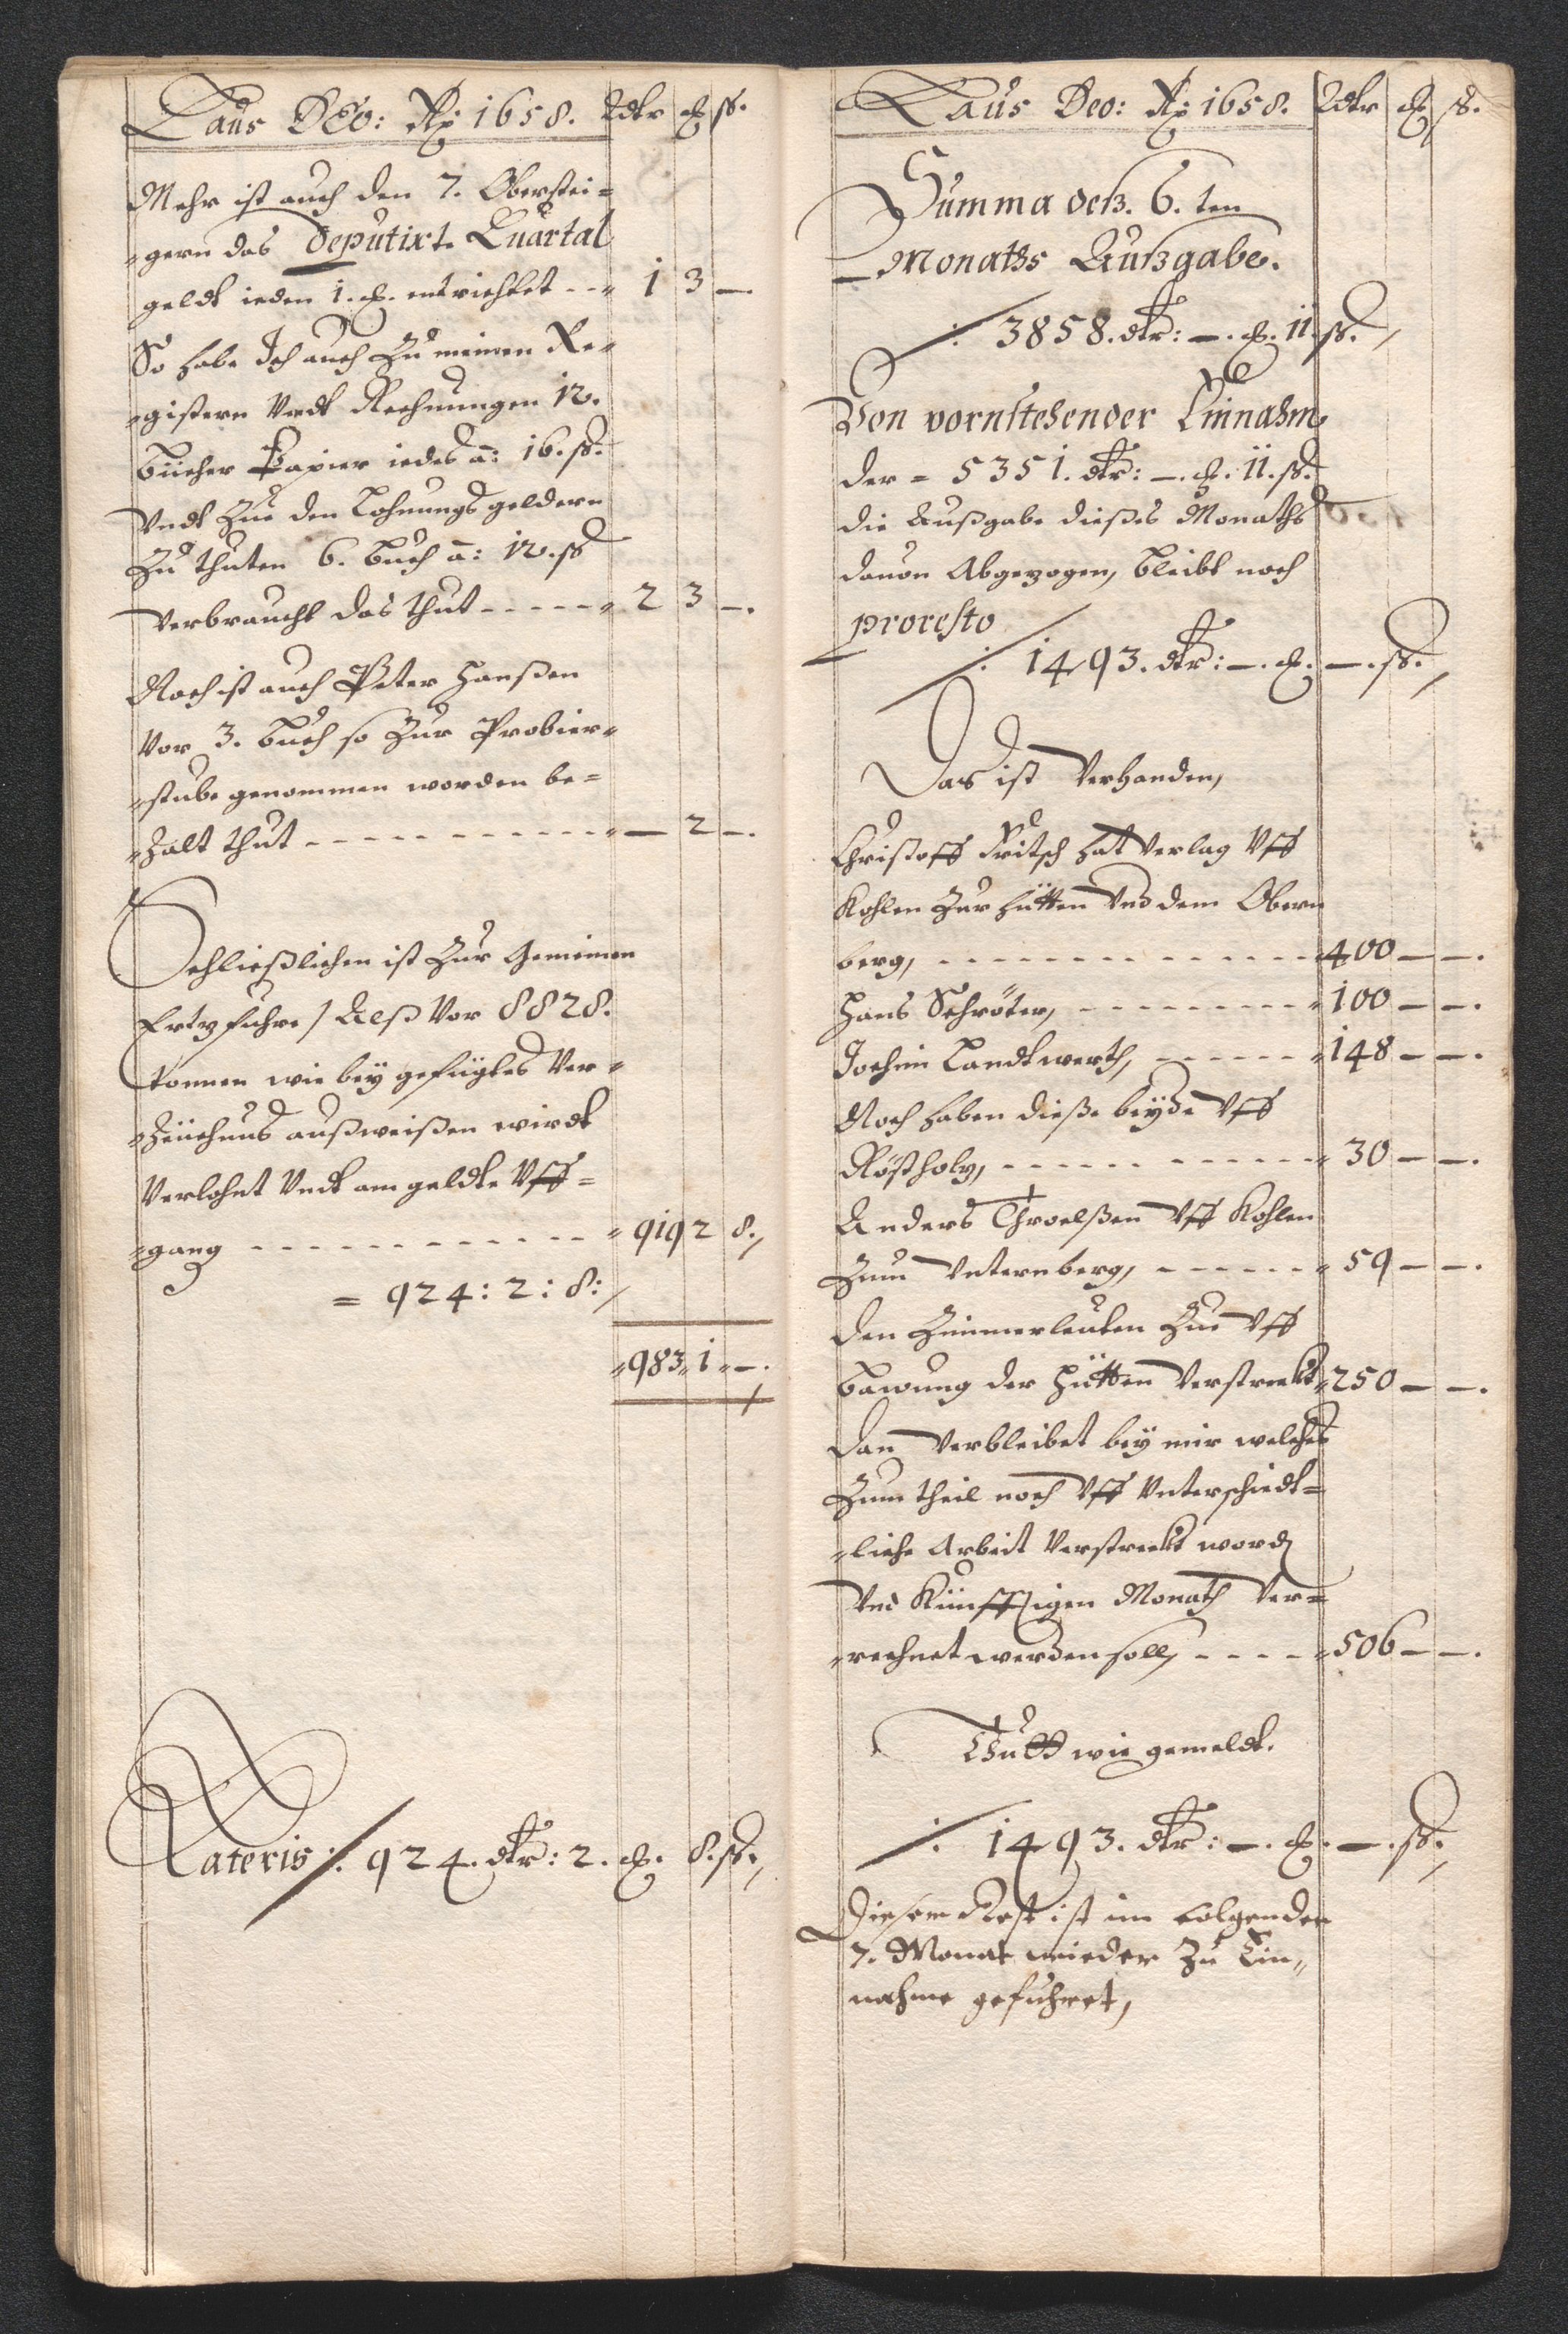 Laus Deo: Xp 1658. Rdtr ȹ ss.
Mehr ist auch den 7. Oberstei=
=gern das Deputirt. Quartal
geldt ieden 1. ȹ. entrichtet -- " 1 3 —.
So habe Ich auch Zu meinen Re=
=gistern Vndt Rechnungen 12.
Bücher Papier iedes â: 16. ss.
Vndt Zue den Lohnungs geldern
Zu thuten 6. Buch â: 12. ss
Verbraucht das thut ----- " 2 3 —.
Noch ist auch Peter Hanßen
Vor 3. Buch so Zur Probier=
=stube genommen worden be=
=Zalt thut ----------- " — 2 —.
Schließlichen ist Zur Gemeinen
Ertzfuhre / Alß Vor 8828.
tonnen wie bey gefügtes Ver=
=Zeichnus außweißen wirdt
Verlohnt Vndt am geldte Vff=
=gang ------------ " 919 2 8.
= 924: 2: 8:
" 983 " 1 " —.
Lateris ∕. 924. dtr: 2. ȹ. 8. ss.
Laus Deo: Xp 1658. Rdtr ȹ ss.
Summa deß. 6. ten
Monaths Außgabe.
∕. 3858. dtr: —. ȹ. 11. ss.
Von vornstehender Einnahm
der = 5351. dtr: —. ȹ. 11. ss.
die Außgabe dießes Monaths
dauon Abgezogen, bleibt noch
proresto
∕. 1493. dtr: —. ȹ. —. ss.
Das ist Verhanden,
Christoff Fritsch hat Verlag Vff
Kohlen Zur hütten Vnd dem Obern
berg, ------------- 400 — —.
Hans Schröter, --------- " 100 — —.
Jochim Landtwerth, ------ " 148 — —.
Noch haben dieße beyde Vff
Röstholtz, ------------ " 30 — —.
Anders Throelßen Vff Kohlen
Zum Vnternberg, ------ " 59 — —.
den Zimmerleuten Zue Vff
bawung der Hütten Verstreckt " 250 — —.
dan Verbleibet bey mir welches
Zum theil noch Vff Vnterschiedt=
=liche Arbeit Verstreckt word
Vnd Künfftigen Monath Ver=
=rechnet werden soll, ---- " 506 — —.
Thutt wie gemeldt.
∕. 1493. dtr: —. ȹ. —. ss.
Dieser Rest ist im folgenden
7. Monat wieder Zu Ein"
nahme gefuhret,